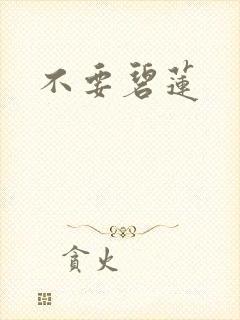 不要碧莲
贪火